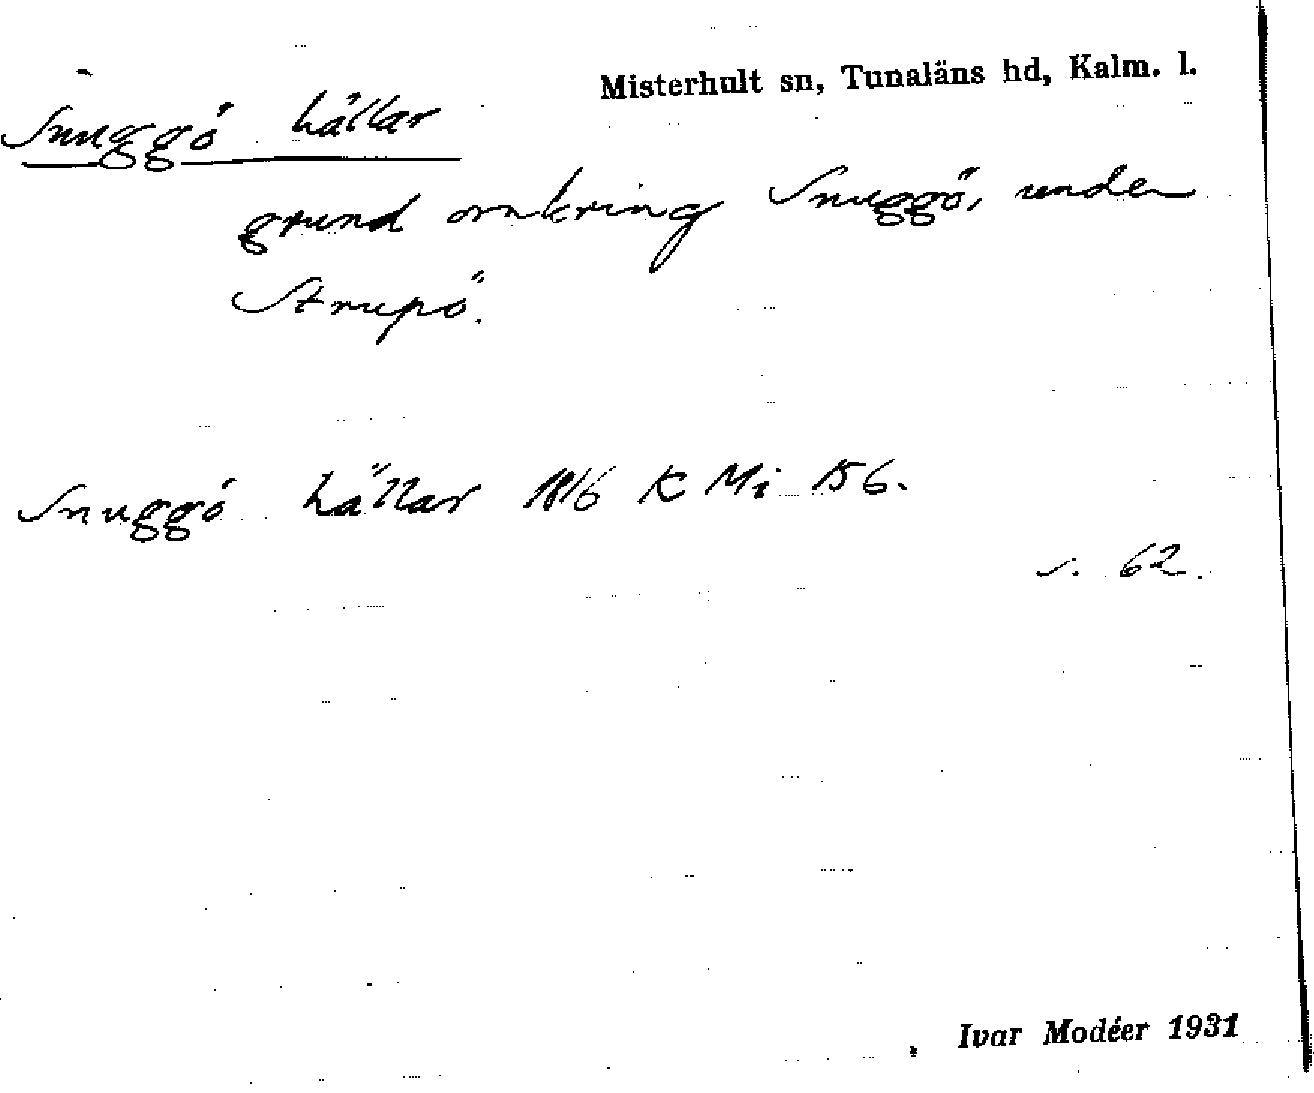 Misterhult sn, Tunaläns hd, Kalm. l.
Snuggö hällar
grund omkring Snuggö, under
Strupö.
Snuggö hällar 1816 K Mi 156.
s. 62.
Ivar Modéer 1931